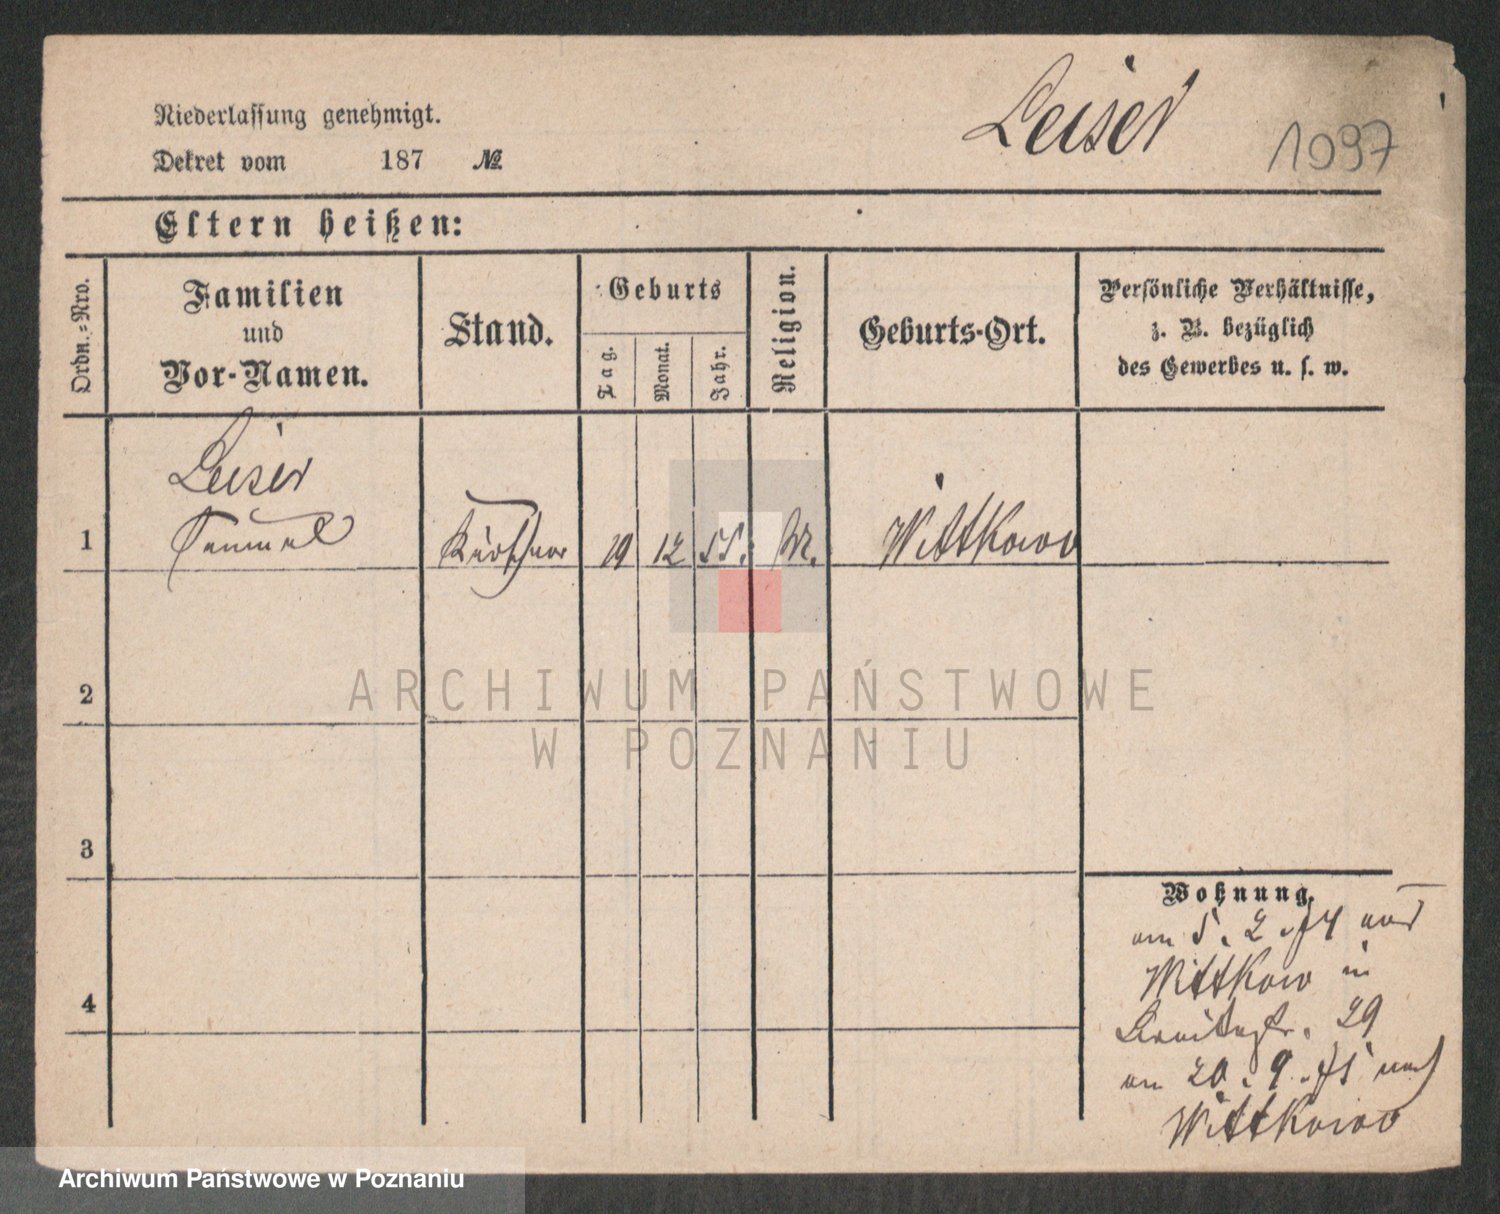 Leiser
1097
Niederlassung genehmigt.
Dekret vom 187 №
Eltern heißen:
Ordn.-Nro.
Familien
und
Vor-Namen.
Stand.
Geburts
Tag.
Monat.
Jahr.
Religion.
Geburts-Ort.
Persönliche Verhältnisse,
z. B. bezüglich
des Gewerbes u. s. w.
Leiser
1 Samuel Kürschner 19 12 55. Wittkowo
2
3
4
Wohnung.
am 5. 2. 74 aus
Wittkowo in
29
am 20. 9. 75 nach
Wittkowo
ARCHIWUM PAŃSTWOWE
W POZNANIU
Archiwum Państwowe w Poznaniu